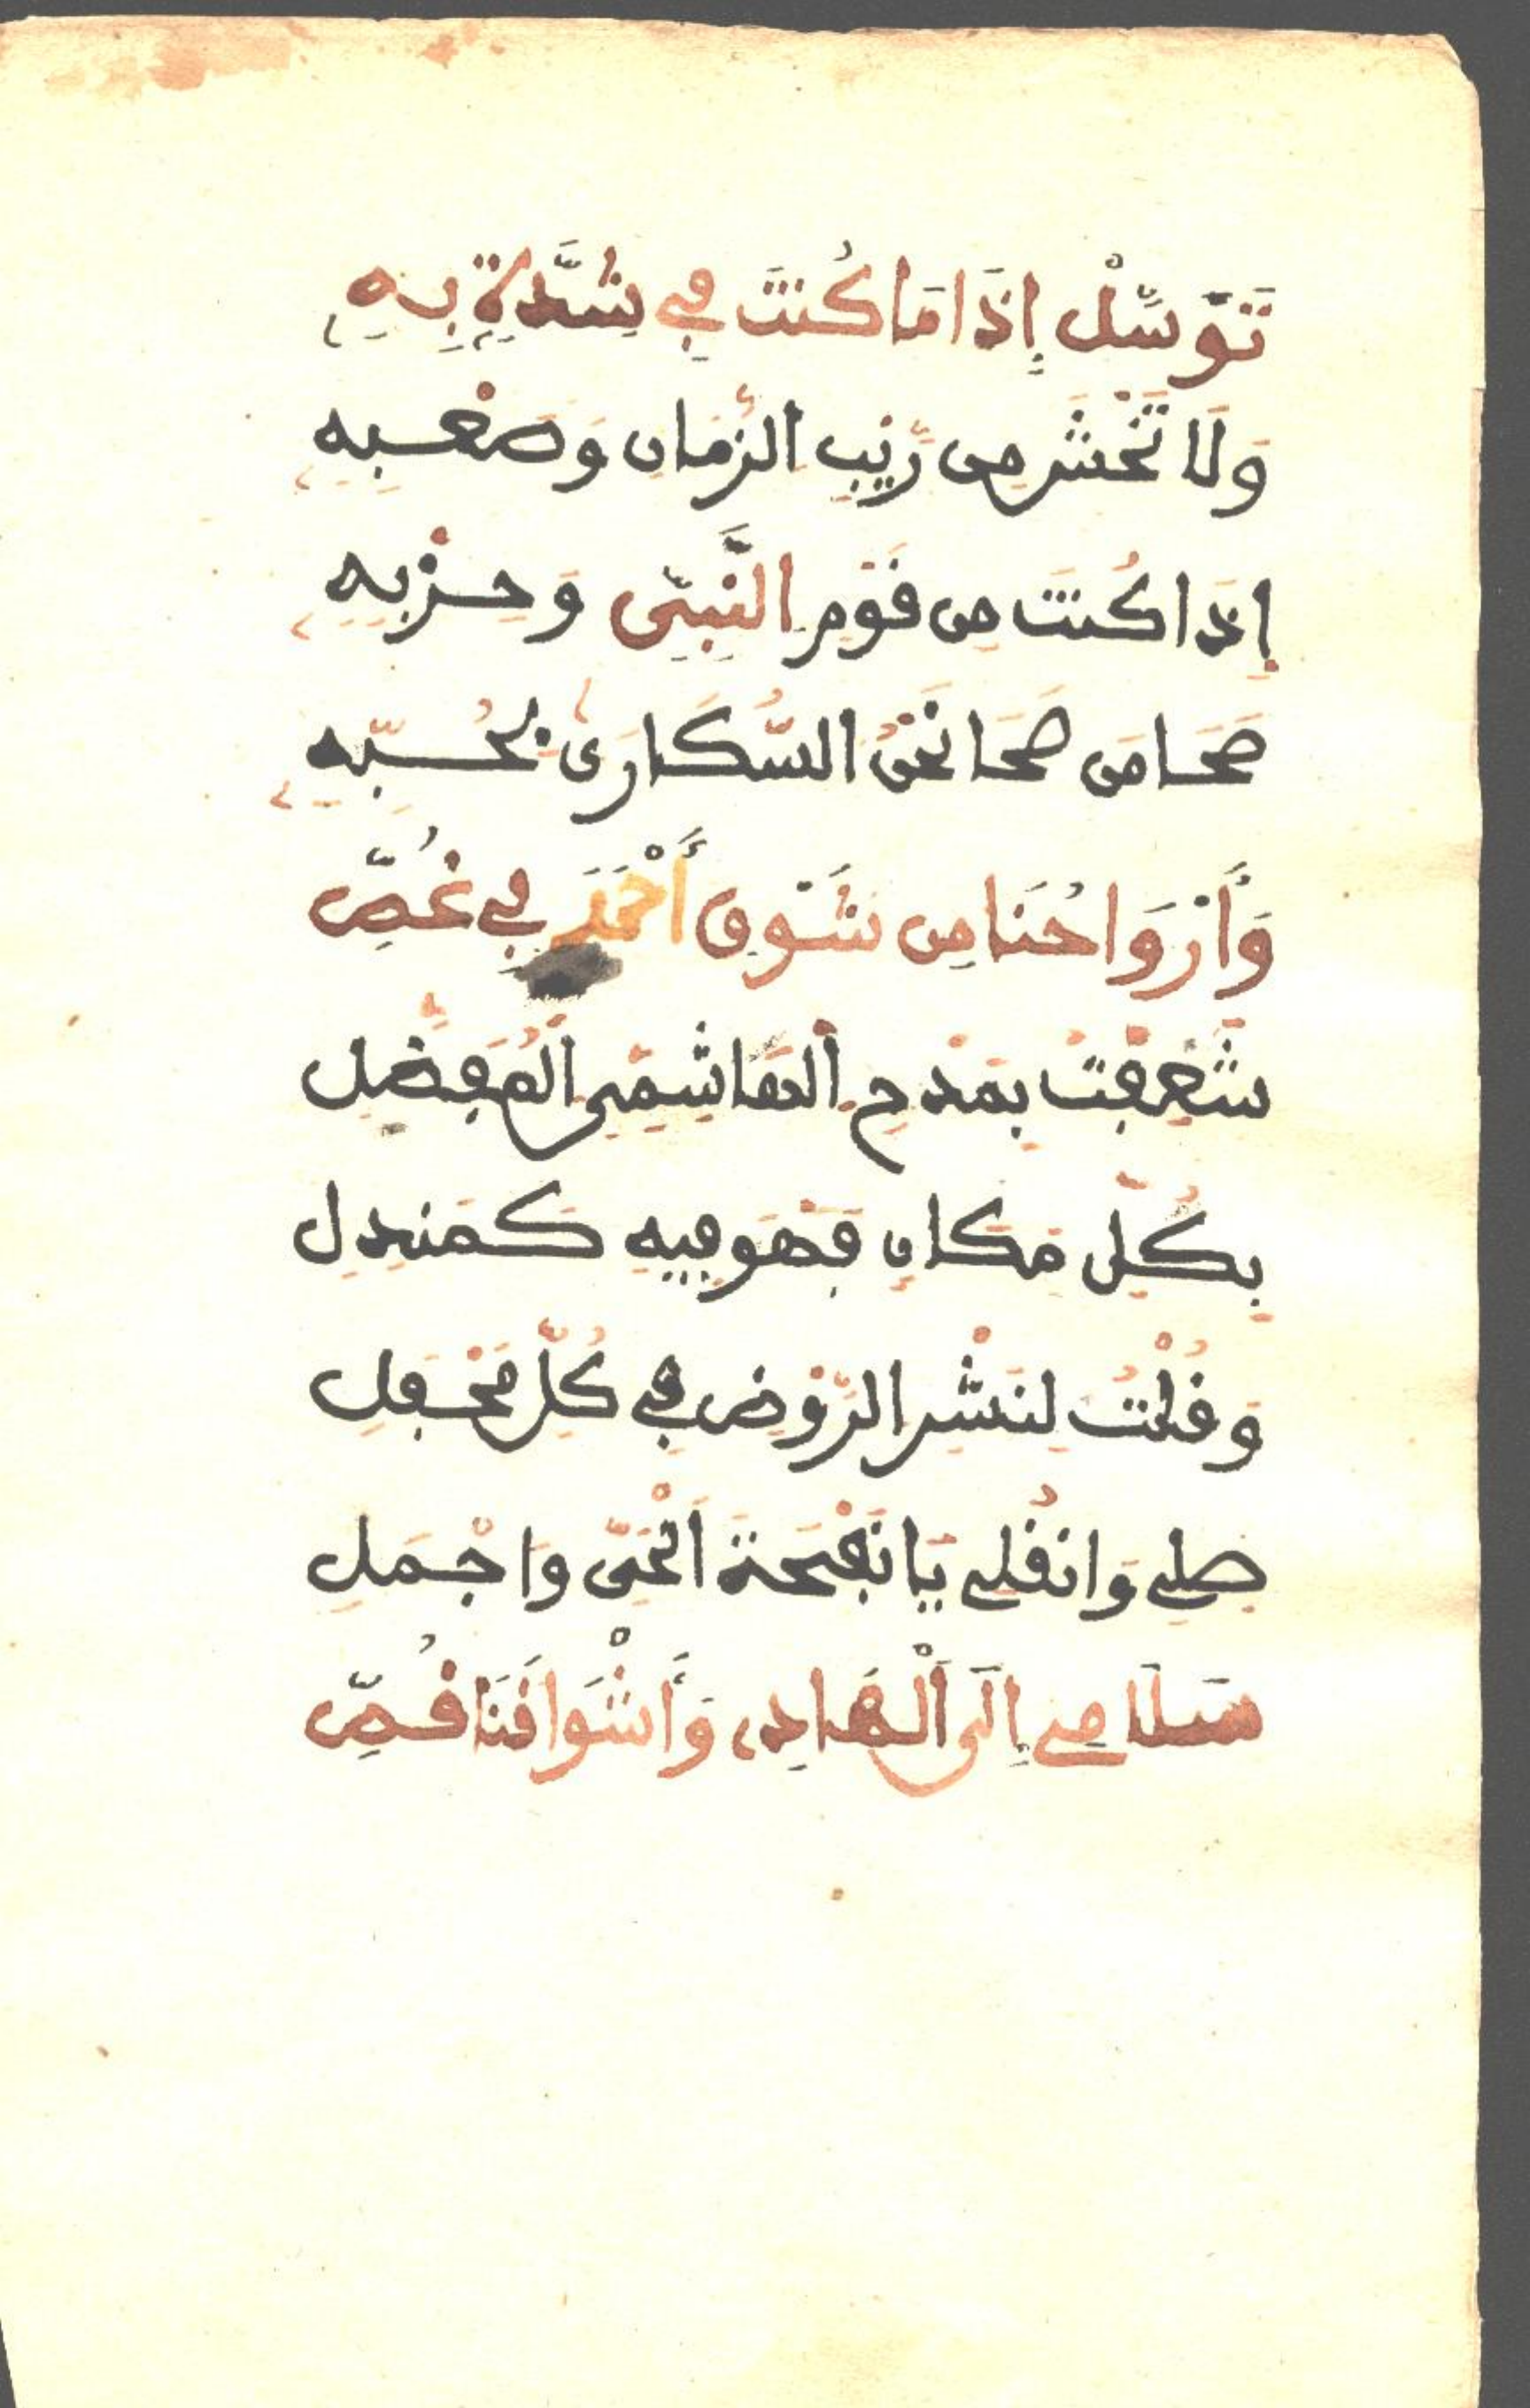 تَوَسَّلْ إِذَا مَا كُنتَ فِي شِدَّةٍ بِهِ
وَلَا تَخْشَ مِن رَّيْبِ الزَّمَانِ وَصَعْبِهِ
إِذَا كُنتَ مِن قَوْمِ النَّبِيِّ وَحِزْبِهِ
صَحَا مَن صَحَا نَحْنُ السُّكَارَىٰ بِحُبِّهِ
وَأَرْوَاحُنَا مِن شَوْقِ أَحْمَدَ فِي غُصِّ
شُغِفْتُ بِمَدْحِ الْهَاشِمِيِّ الْمُفَضَّلِ
بِكُلِّ مَكَانٍ فَهْوَ فِيهِ كَمَنْدَلِ
وَقُلْتُ لِنَشْرِ الرَّوْضِ فِي كُلِّ مَحْفِلِ
صِلِي وَانْقُلِي يَا نَفْحَةَ الْحَيِّ وَاحْمِلِ
سَلَامِي إِلَى الْهَادِي وَأَشْوَاقَنَا قُصِّ